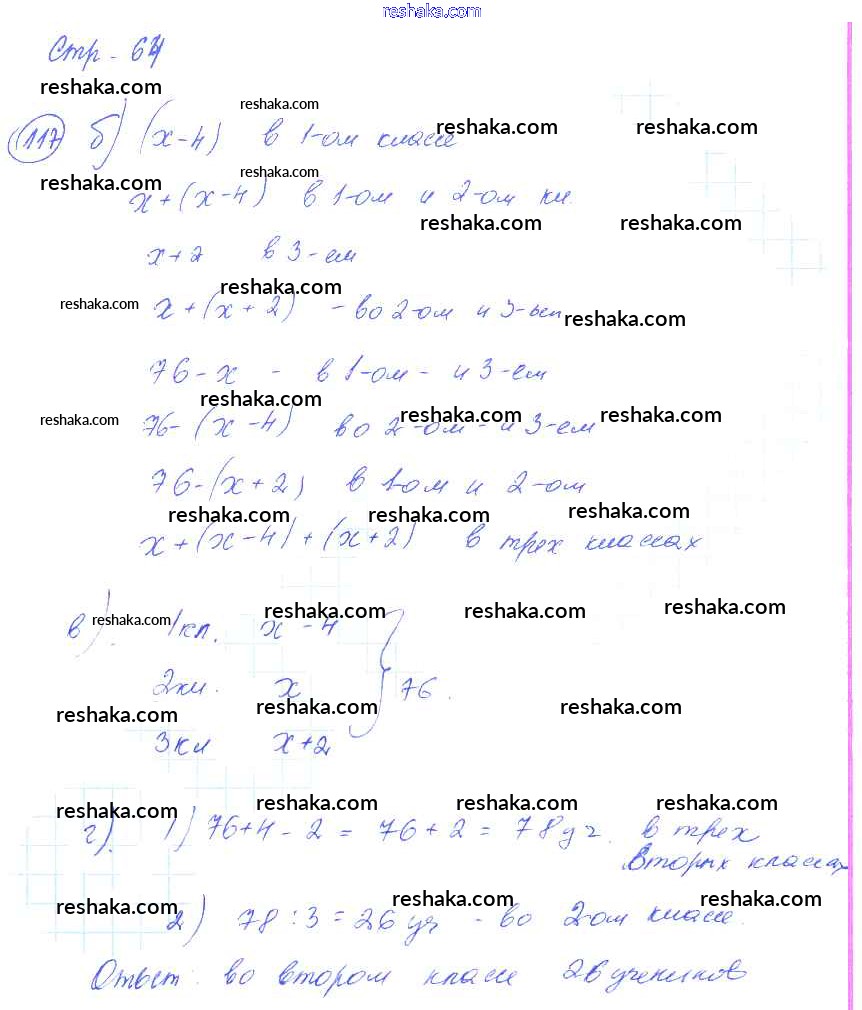 reshaka.com
Стр - 64
reshaka.com
reshaka.com
117 б) (х-4) в 1-ом классе reshaka.com reshaka.com
reshaka.com reshaka.com
х+(х-4) в 1-ом и 2-ом кл.
reshaka.com reshaka.com
х+2 в 3-ем
reshaka.com
reshaka.com х+(х+2) - во 2-ом и 3-ем reshaka.com
76-х - в 1-ом - и 3-ем
reshaka.com
reshaka.com 76-(х-4) во 2-ом - и 3-ем reshaka.com reshaka.com
76-(х+2) в 1-ом и 2-ом
reshaka.com reshaka.com reshaka.com
х+(х-4)+(х+2) в трех классах
reshaka.com reshaka.com reshaka.com
в). reshaka.com 1кл. х-4
2кл. х } 76.
reshaka.com reshaka.com reshaka.com
3кл х+2
reshaka.com reshaka.com reshaka.com reshaka.com
г). 1) 76+4-2 = 76+2 = 78уч. в трех
вторых классах
reshaka.com reshaka.com reshaka.com
2) 78:3=26 уч - во 2-ом классе.
Ответ: во втором классе 26 учеников